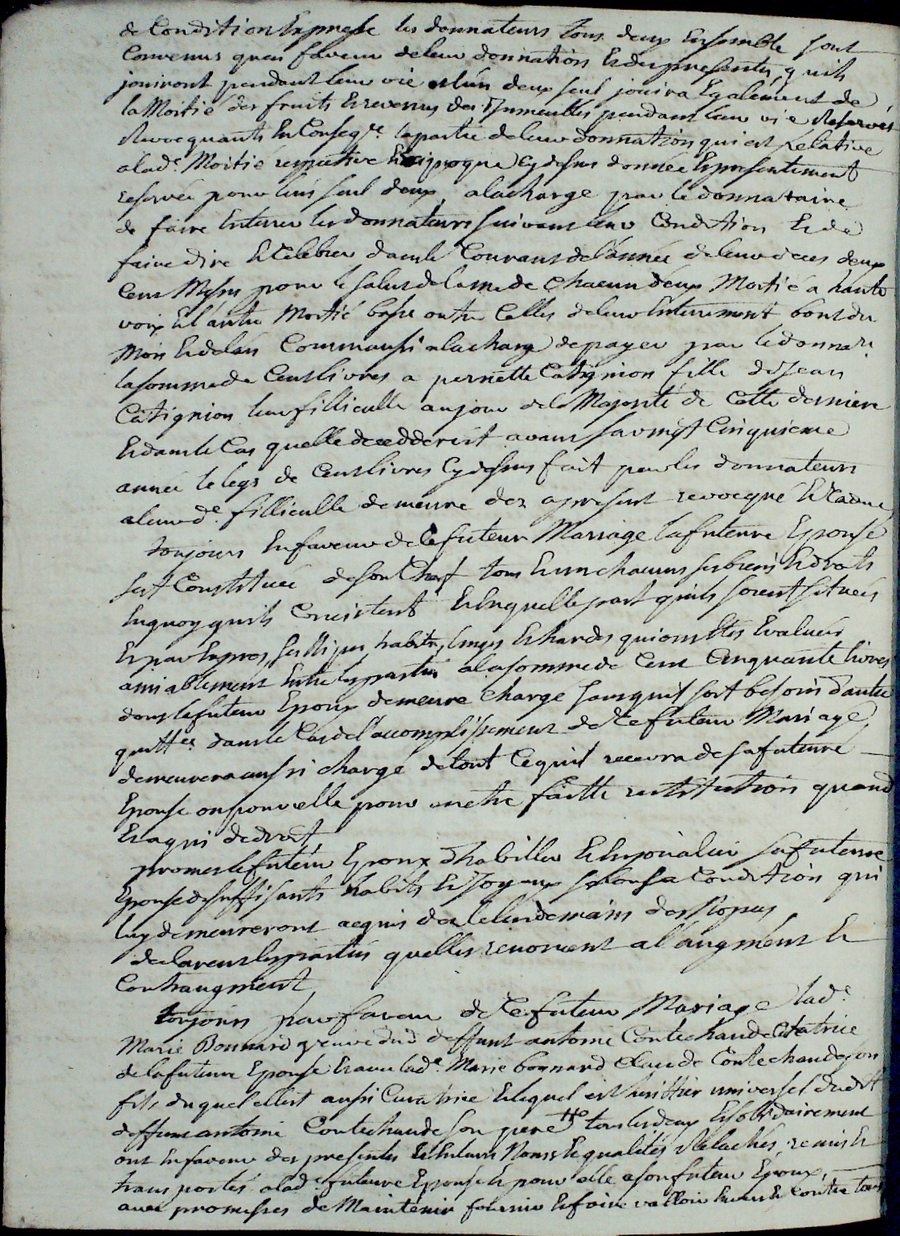 de Condition Expresse les donnateurs tous deux Ensemble sont
Convenus quen faveur de leur donnation Et des presentes, quils
jouiront pendant leur vie et lun deux seul jouira Egalement de
la Moitié des fruits Et revenus des Immeubles pendant leur vie Reservés
Revocquants En Conseqce la partie de leur donnation qui est Relative
a lade Moitié respective Et reciproque Cy dessus donnée Et presentement
reservée pour lun seul deux, a la charge par le donnataire
de faire Enterrer les donnateurs suivant leur Condition Et de
faire dire Et Celebrer dans le Courant de lannée de leur deces deux
Cent Messes pour le salut de lame de Chacun deux Moitié a haute
voix Et lautre Moitié basse outre Celles de leur Enterrement bout du
Mois Et de lan Comme aussi a la charge de payer par le donnatre
la somme de Cent livres a pernette Catignion fille de Jean
Catignion leur filliculle au jour de la Majorité de Cette derniere
Et dans le Cas quelle decedderoit avant sa vingt Cinquieme
année le legs de Cent livres Cy dessus fait par les donnateurs
a leurde filliculle demeure dez a present revocqué Et Caduc
Toujours En faveur de Ce futeur Mariage la futeure Epouse
sest Constituée de son Chef tous Et un chacuns ses biens Et droits
En quoy quils Consistent Et En quelle part quils soient situés
Et par Expres, ses linges habits, linges Et hardes qui ont Etés Evalués
amiablement Entre les parties a la somme de Cent Cinquante livres
dont le futeur Epoux demeure Chargé sans quil soit besoin dautre
quittce dans le Cas de l'accomplissement de Ce futeur Mariage,
demeurera aussi chargé de tout Ce quil recevra de sa futeure
Epouse ou pour elle pour en etre faitte restitution quand
Et a qui de droit
promet le futeur Epoux dhabiller Et Enjoualler sa futeure
Epouse de suffisants habits Et Joyaux selon sa Condition qui
luy demeureront acquis dez le lendemain des Nopces
declarent les parties quelles renoncent a l'augment Et
Contraugment,
Toujours par faveur de Ce futeur Mariage lade
Marie Bonnard veuve dud deffunt antoine Contechaude Curatrice
de la futeure Epouse Et avec lade Marie bonnard Claude Contechaude son
fils duquel elle est aussi Curatrice Et lequel est heritier universel dudit
deffunt antoine Contechaude son pere tous les deux Et solidairement
ont En faveur des presentes Et En leurs Noms Et qualités Relachés, remis Et
transportés a lade futeure Epouse Et pour elle a son futeur Epoux,
avec promesses de Maintenir fournir Et faire valloir Envers Et Contre tous